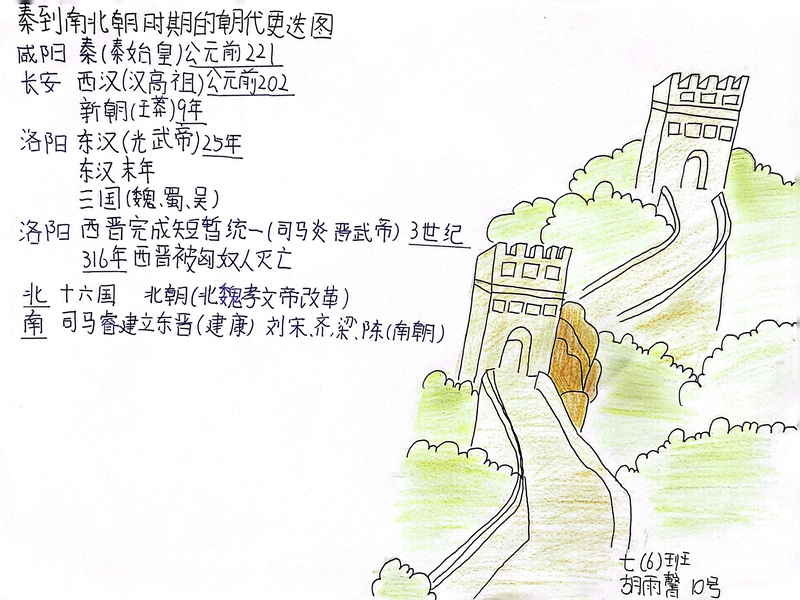 秦到南北朝时期的朝代更迭图
咸阳 秦(秦始皇)公元前221
长安 西汉(汉高祖)公元前202
新朝(王莽)9年
洛阳 东汉(光武帝)25年
东汉末年
三国(魏、蜀、吴)
洛阳 西晋完成短暂统一(司马炎 晋武帝) 3世纪
316年西晋被匈奴人灭亡
北 十六国 北朝(北魏孝文帝改革)
南 司马睿建立东晋(建康) 刘宋、齐、梁、陈(南朝)
七(6)班
胡雨馨 10号